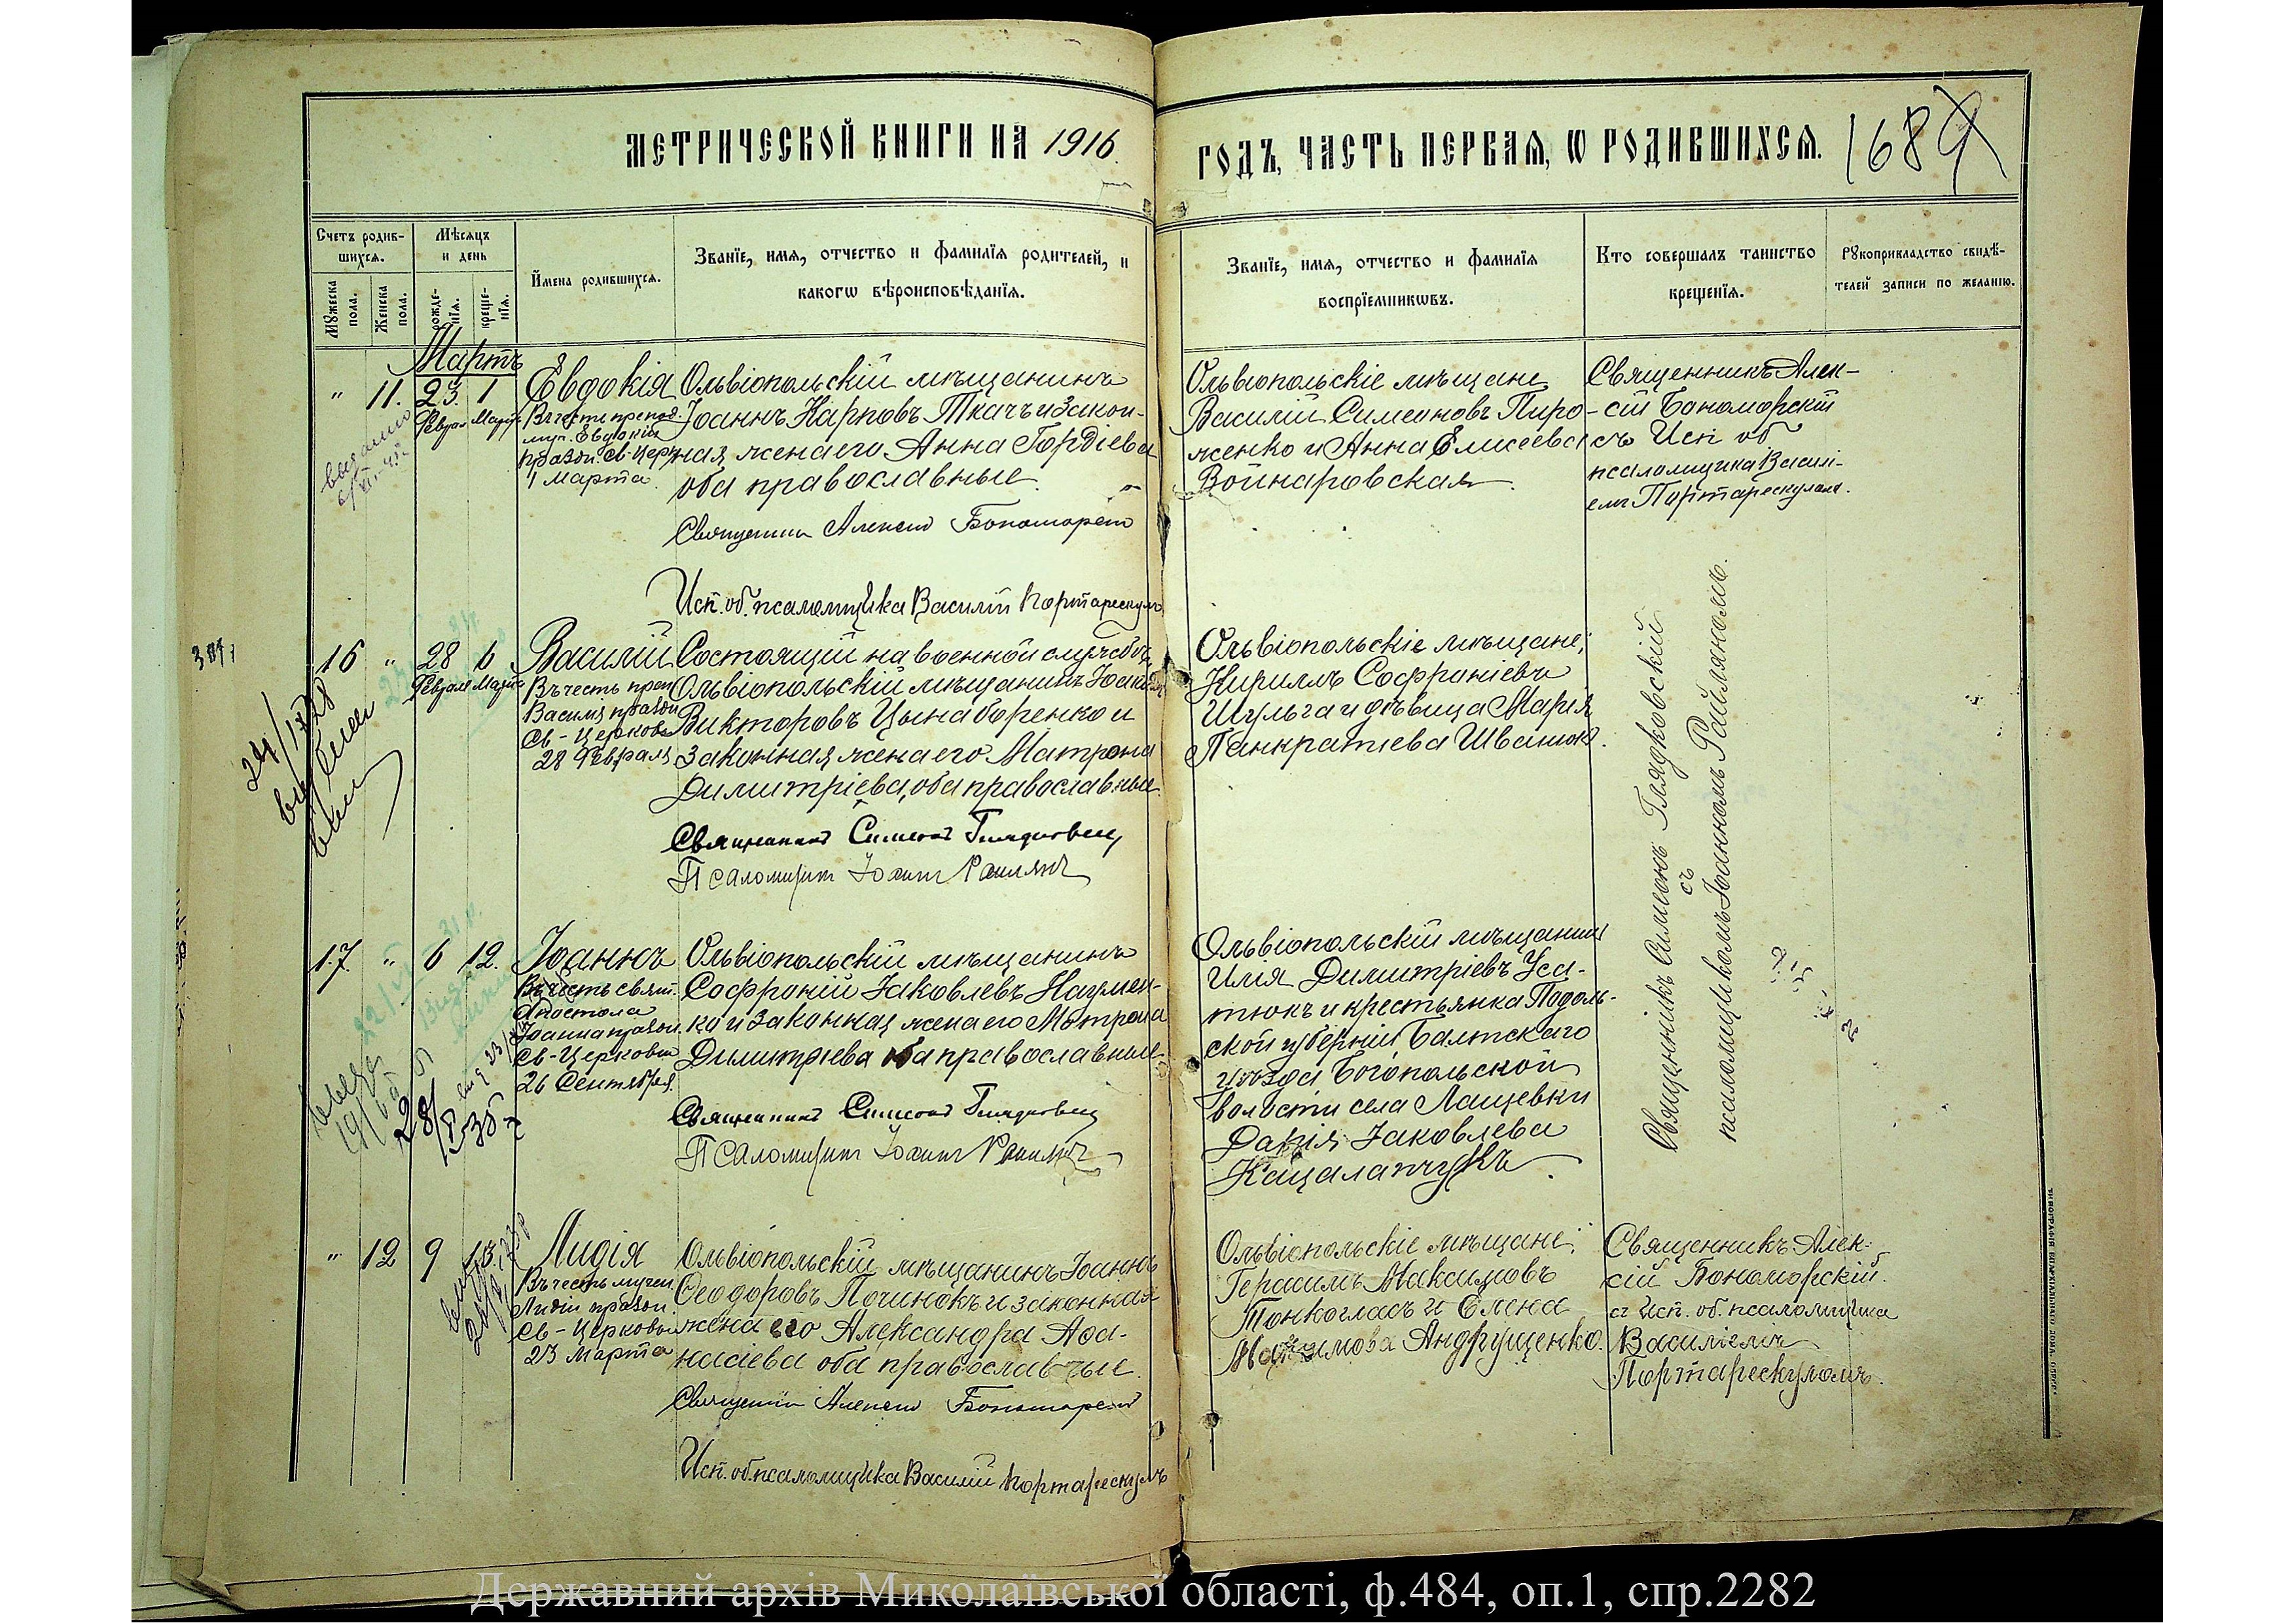 МЕТРИЧЕСКОЙ КНИГИ НА 1916
ГОДЪ, ЧАСТЬ ПЕРВАЯ, Ѡ РОДИВШИХСѦ.
168
Счетъ родив-
шихсѧ.
Мѣсѧцъ
и день
Имена родившихсѧ.
Званїе, имѧ, отчество и фамилїѧ родителей, и
какогѡ вѣроисповѣданїѧ.
Званїе, имѧ, отчество и фамилїѧ
воспрїемникѡвъ.
Кто совершалъ таинство
крещенїѧ.
Рꙋкоприкладство свидѣ-
телей записи по желанїю.
Мꙋжеска
пола.
Женска
пола.
рожде-
нїѧ.
креще-
нїѧ.
Мартъ
" 11. 23 1
Февраля Марта
Евдокія
Въ честь препод.
муч. Евдокіи
празdн. Св. Церк.
1 Марта.
Ольвіопольскій мѣщанинъ
Іоаннъ Карповъ Ткачъ и закон-
ная жена его Анна Гордіева
оба православные.
Священникъ Алексій Бономорскій
Исп. об. псаломщика Василій Портарескулъ
Ольвіопольскіе мѣщане
Василій Симеоновъ Пиро-
женко и Анна Елисеева
Войнаровская.
Священникъ Алек-
сій Бономорскій
съ Исп об
псаломщика Васили-
емъ Портарескуломъ.
16 " 28 6
Февраля Марта
Василій
Въ честь преп
Василія праздн
Св-Церковью
28 Февраля
Состоящій на военной службѣ
Ольвіопольскій мѣщанинъ
Викторовъ Цынаборенко и
законная жена его Матрона
Димитріева, оба православные.
Священникъ Симеонъ Глядковскій
Псаломщикъ Іоаннъ Раилянъ
Ольвіопольскіе мѣщане;
Кириллъ Софроніевъ
Шульга и дѣвица Марія
Панкратіева Шванюк.
Священникъ Симеонъ Глядковскій
съ
псаломщикомъ Іоанномъ Райляномъ.
17. " 6 12.
Іоаннъ
Въ честь свят.
Апостола
Іоанна праздн.
Св-Церковью
26 Сентября.
Ольвіопольскій мѣщанинъ
Софроній Іаковлевъ Наумен-
ко и законная жена его Матрона
Димитріева оба православные.
Священникъ Симеонъ Глядковскій
Псаломщикъ Іоаннъ Раилянъ
Ольвіопольскій мѣщанинъ
Илія Димитріевъ Уса-
тюкъ и крестьянка Подоль-
ской губерніи Балтскаго
уѣзда Богопольской
волости села Лащевки
Дарія Іаковлева
Кацалапчукъ.
" 12 9 13.
Лидія
Въ честь мучен
Лидіи праздн.
Св-Церковью
23 Марта
Ольвіопольскій мѣщанинъ Іоаннъ
Ѳеодоровъ Починокъ и законная
жена его Александра Аѳа-
насіева оба православные.
Священникъ Алексій Бономорскій
Исп. об. псаломщика Василій Портарескулъ
Ольвіопольскіе мѣщане;
Герасимъ Максимовъ
Тонкогласъ и Елена
Максимова Андрущенко.
Священникъ Алек-
сій Бономорскій.
съ Исп. об. псаломщика
Василіемъ
Портарескуломъ.
Державний архів Миколаївської області, ф.484, оп.1, спр.2282